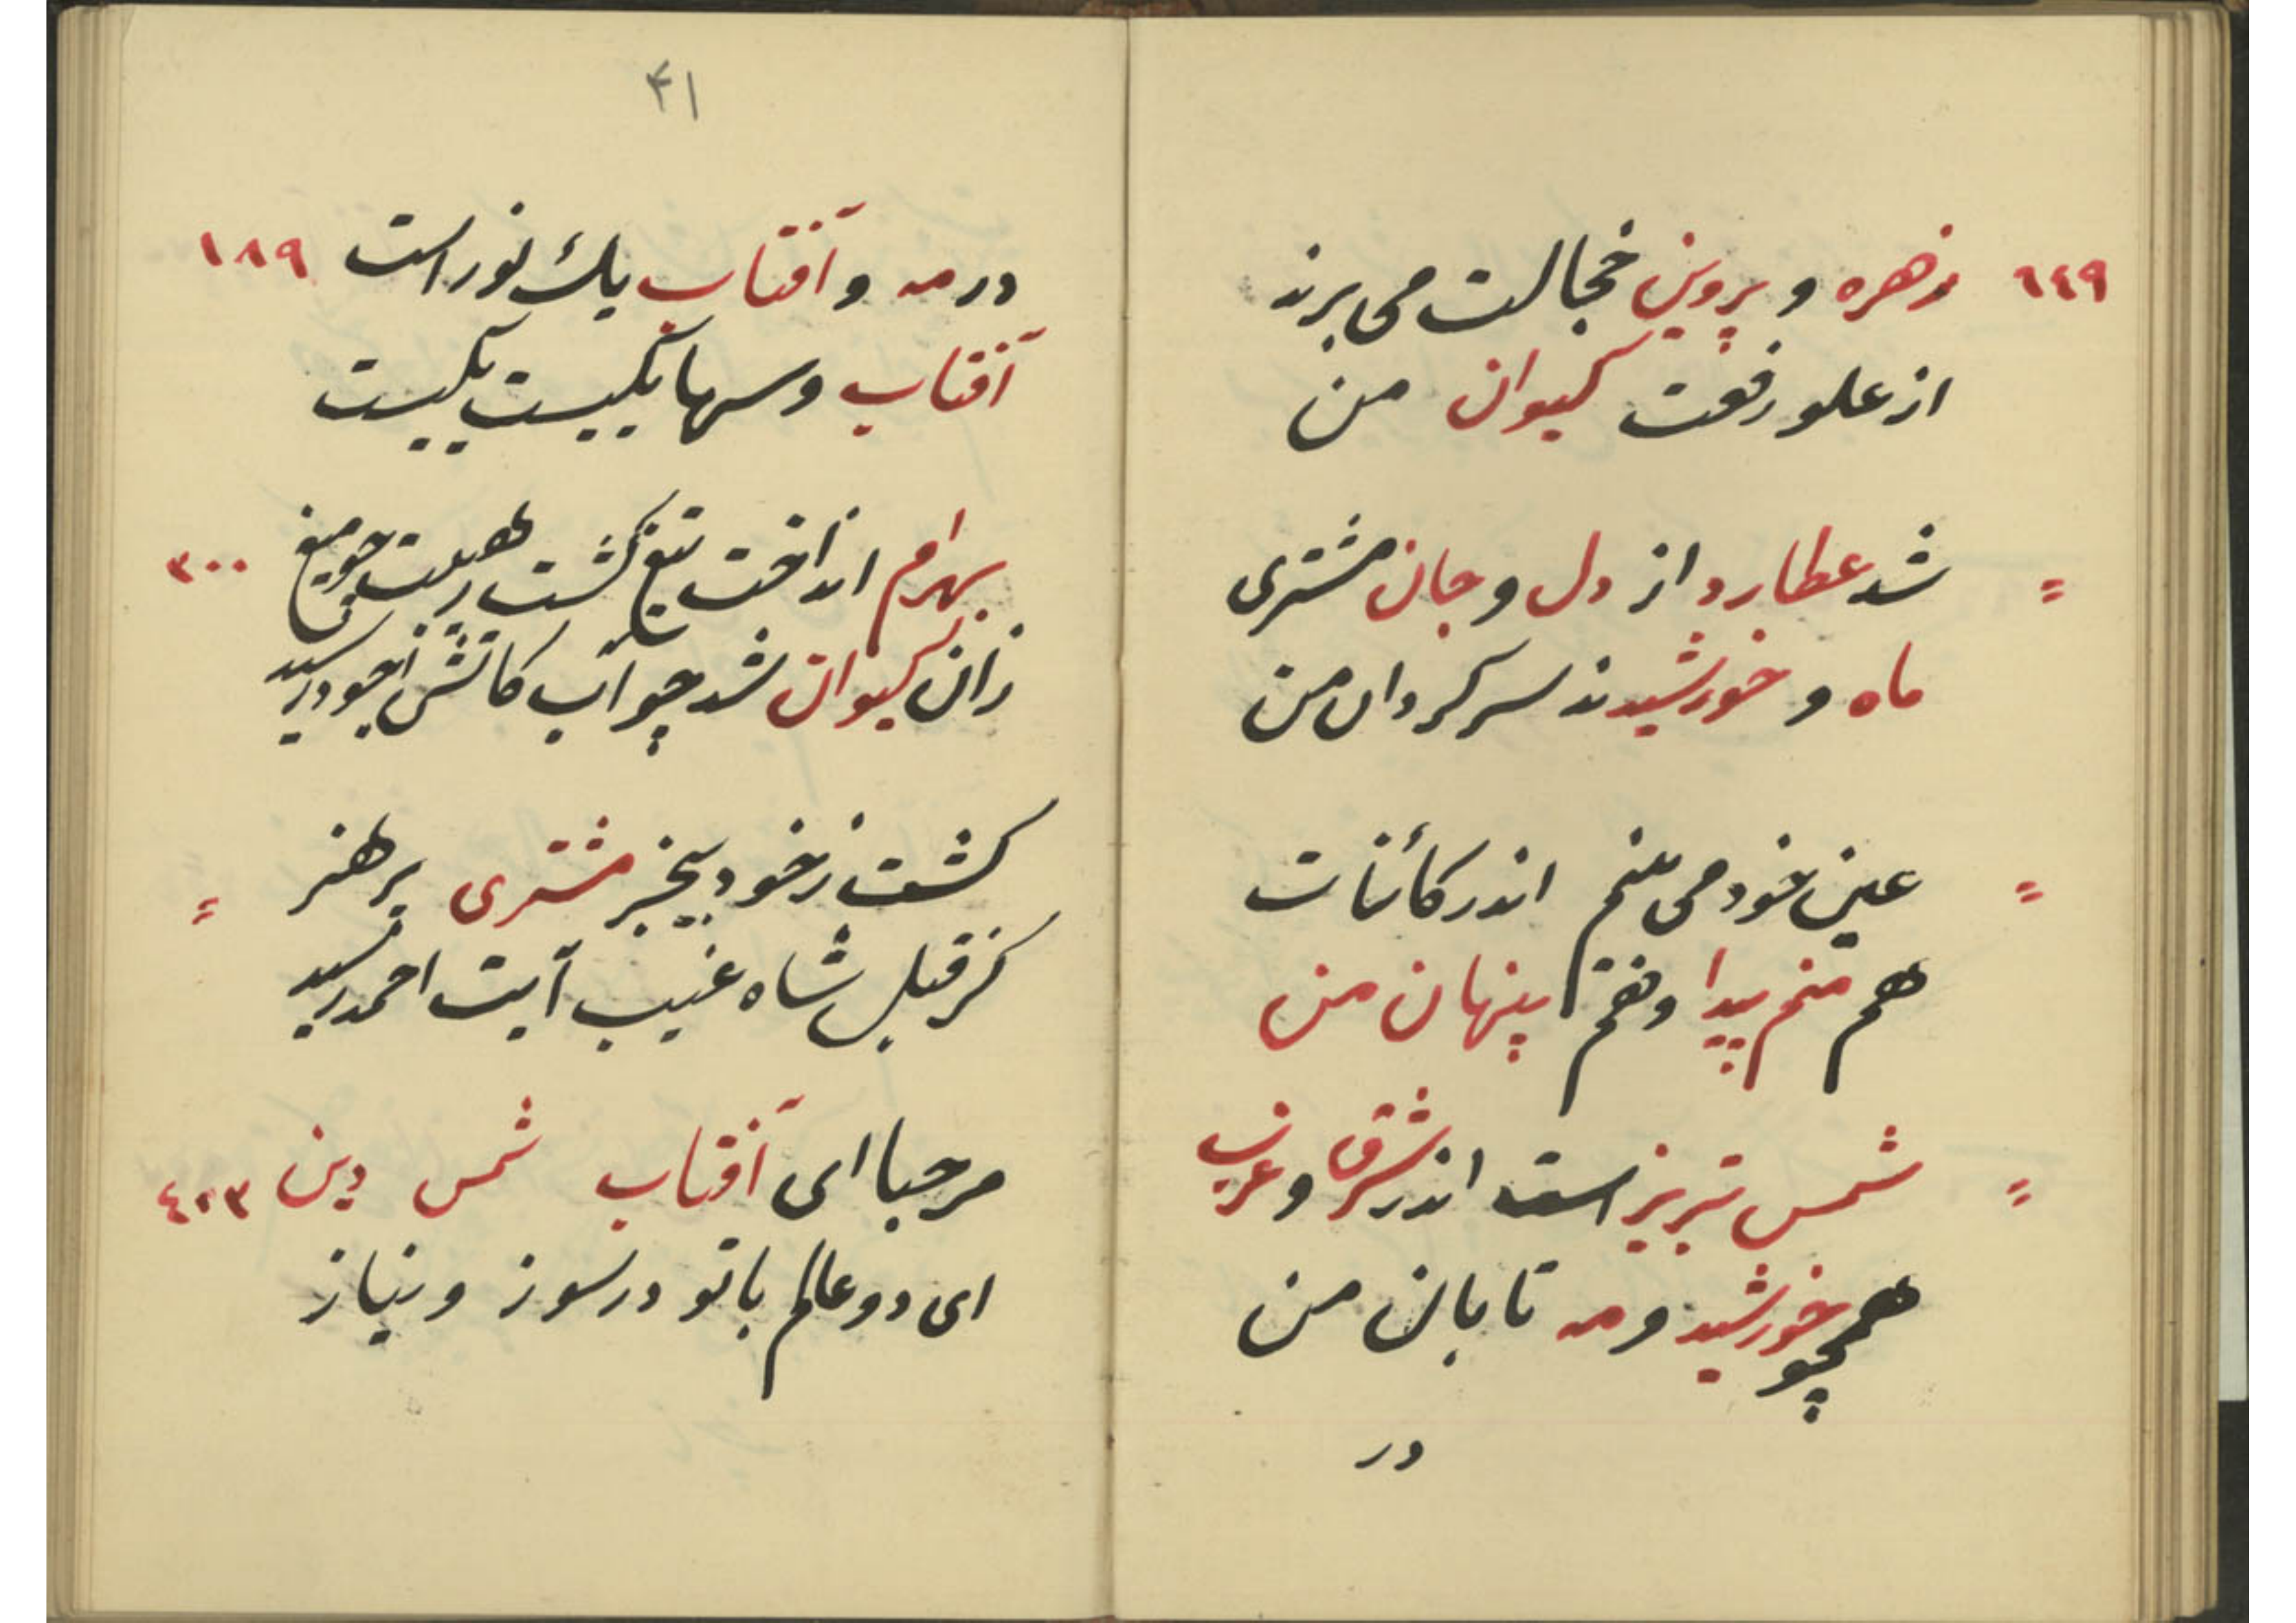 ٦٤٩ زهره و پروین خجالت می برند
از علو رفعت کیوان من
= شد عطارد از دل و جان مشتری
ماه و خورشیدند سرکردان من
= عین خود می بینم اندر کائنات
هم منم پیدا و هم پنهان من
= شمس تبریز است اندر شرق و غرب
همچو خورشید و مه تابان من
در
۴۱
در مه و آفتاب یک نور است ١٨٩
آفتاب و سها یکیست یکیست
بهرام انداخت تیغ کشت زهیبت چو میغ ٣٠٠
زان کیوان شد چو آب کاتش رسید
کشت ز خود بیخبر مشتری پر هنر =
کز قبل شاه غیب آیت احمد رسید
مرحبا ای آفتاب شمس دین ٤٢٣
ای دو عالم با تو در سوز و نیاز